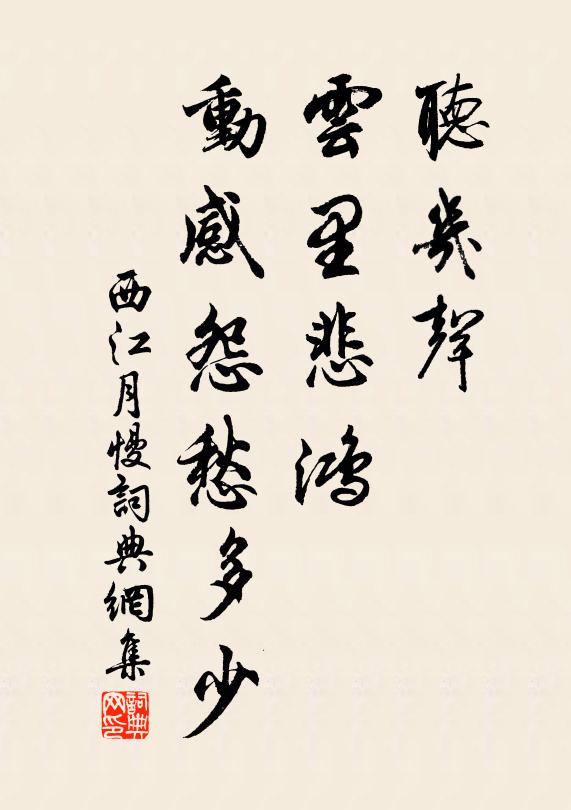 聽幾聲
雲里悲鴻
動感怨愁多少
西江月慢詞典網集
詞典网印